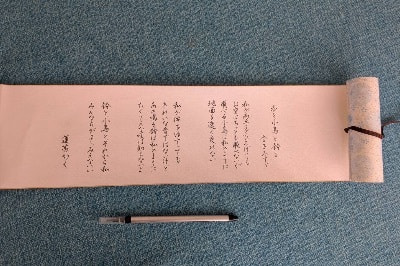 私と小鳥と鈴と
みすゞ
私が両手をひろげても
お空はちっとも飛べないが
飛べる小鳥は私のように
地面を速く走れない
私が体をゆすっても
きれいな音は出ないけど
あの鳴る鈴は私のように
たくさんな唄は知らないよ
鈴と小鳥とそれから私
みんなちがってみんないい
かく